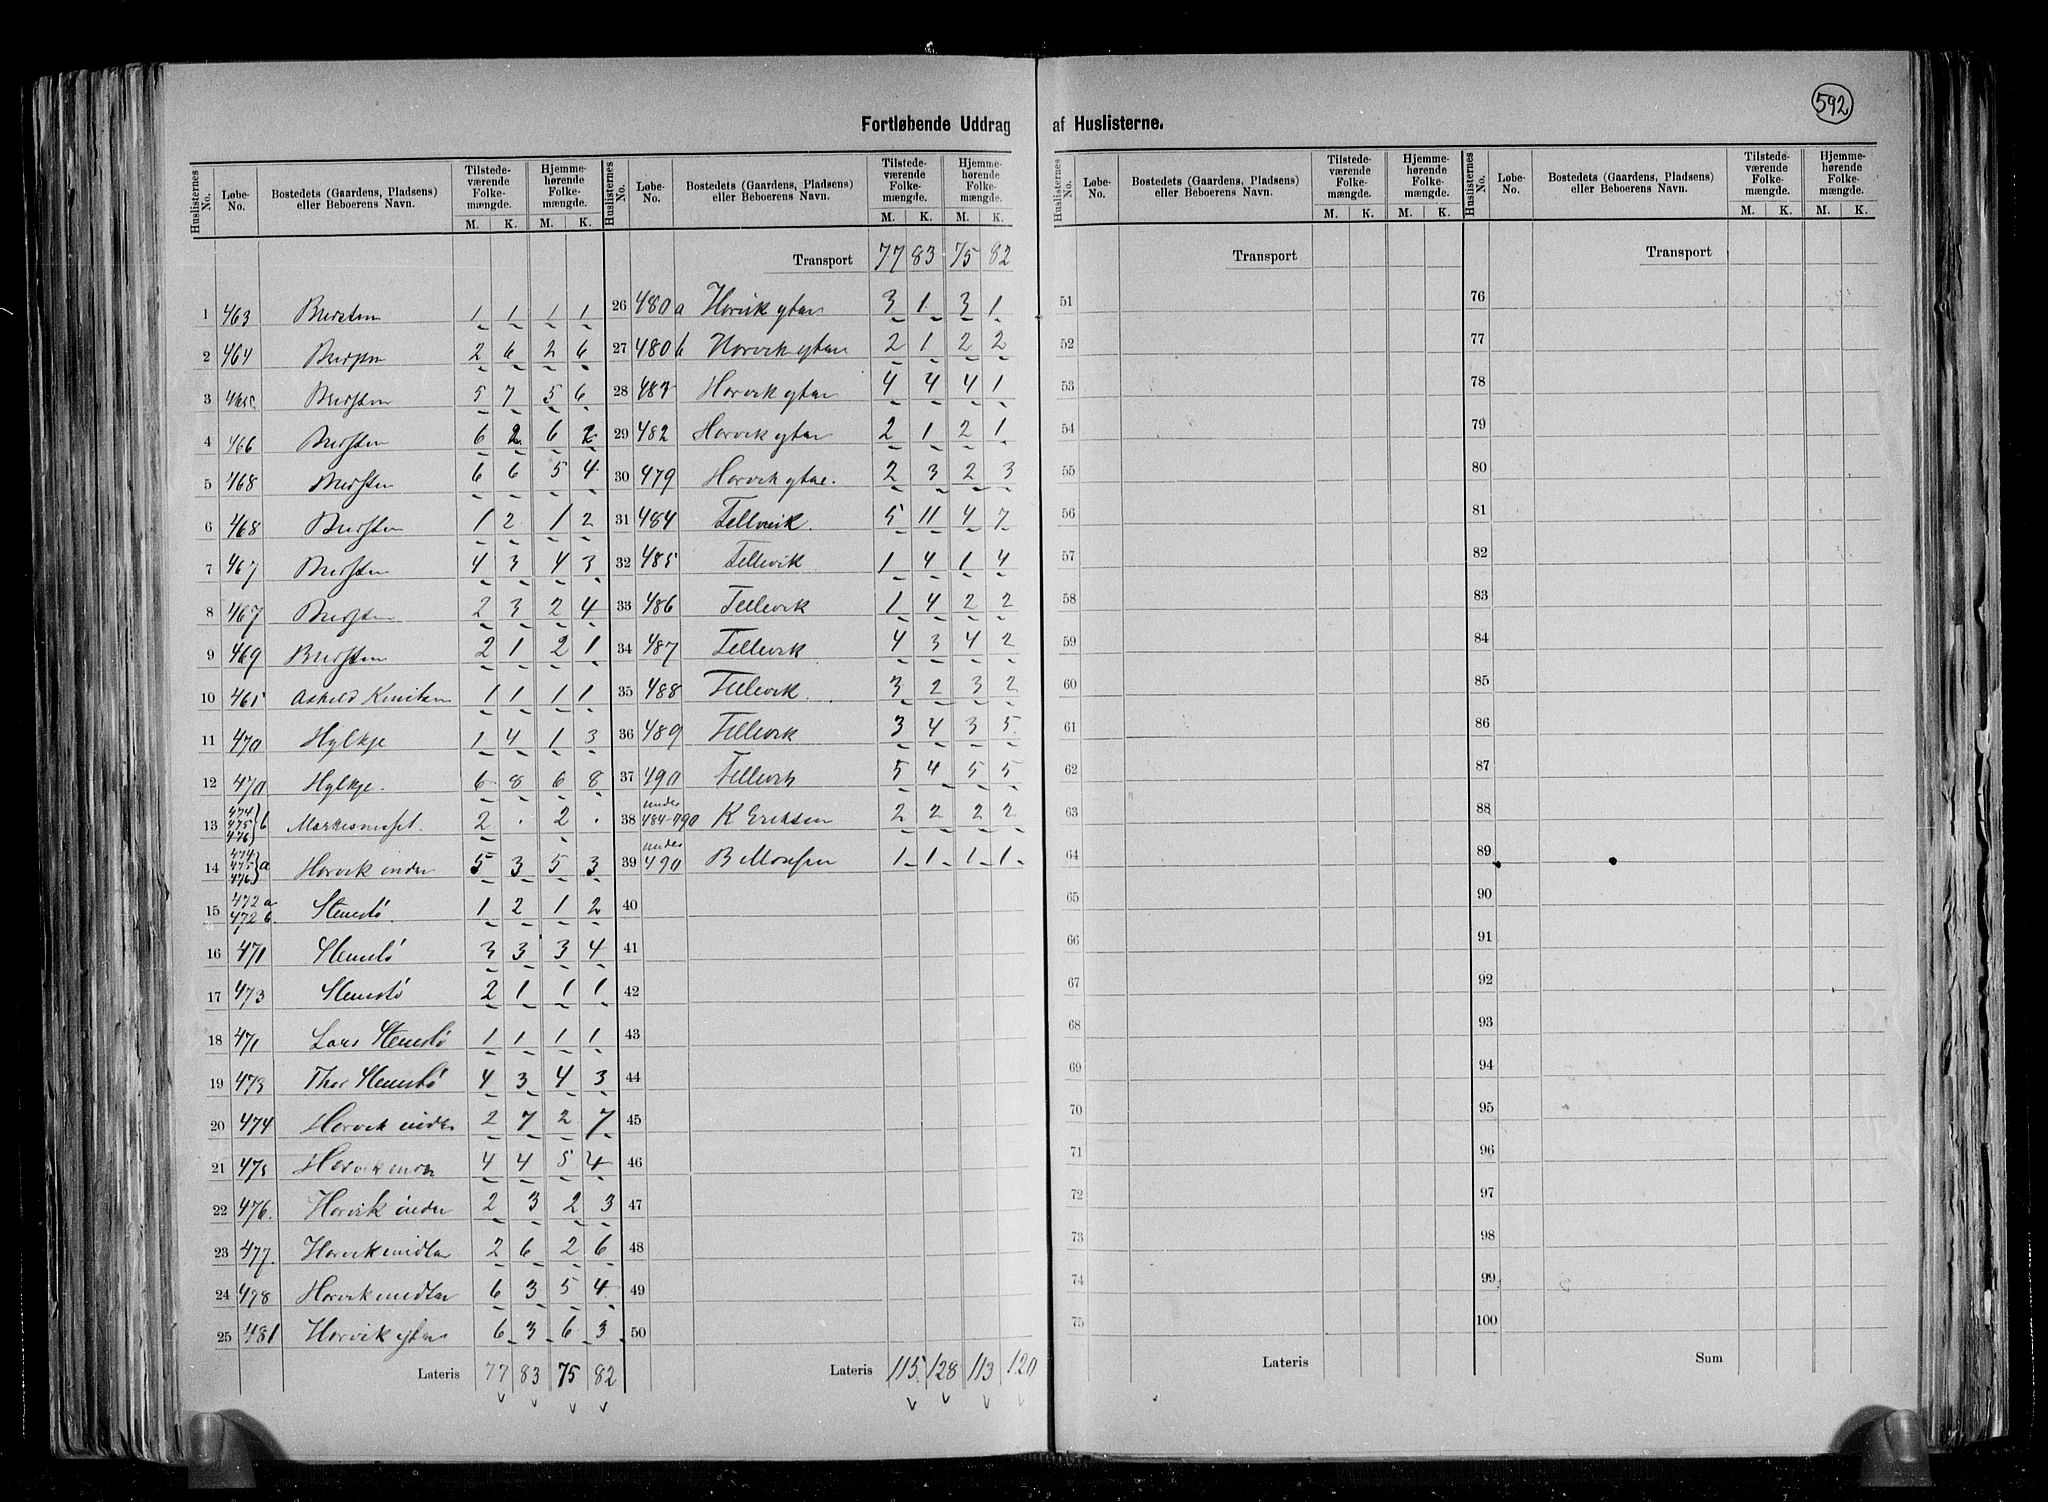 592
Fortløbende Uddrag af Huslisterne.
Huslisternes No. Løbe-No. Bostedets (Gaardens, Pladsens) eller Beboerens Navn. Tilstedeværende Folkemængde. M. K. Hjemmehørende Folkemængde. M. K.
1 463 1 1 1 1
2 464 2 6 2 6
3 465 5 7 5 6
4 466 6 2 6 2
5 468 6 6 5 4
6 468 1 2 1 2
7 467 4 3 4 3
8 467 2 3 2 4
9 469 2 1 2 1
10 465 Askild 1 1 1 1
11 470 Hylkje 1 4 1 3
12 470 Hylkje. 6 8 6 8
13 474 475 476 } b 2 . 2 .
14 474 475 476 } a Horvik indre 5 3 5 3
15 472 a 472 b. Stenstø. 1 2 1 2
16 471 Stenstø 3 3 3 4
17 473 Stenstø 2 1 1 1
18 471 Lars Stenstø 1 1 1 1
19 473 Thor Stenstø 4 3 4 3
20 474 Horvik indre 2 7 2 7
21 475 Horvik indre 4 4 5 4
22 476. Horvik indre 2 3 2 3
23 477. Horvik midtre 2 6 2 6
24 478 Horvik midtre 6 3 5 4
25 481 Horvik ytre 6 3 6 3
Lateris 77 83 75 82
Huslisternes No. Løbe-No. Bostedets (Gaardens, Pladsens) eller Beboerens Navn. Tilstedeværende Folkemængde. M. K. Hjemmehørende Folkemængde. M. K.
Transport 77 83 75 82
26 480 a Horvik ytre 3 1 3 1
27 480 b Horvik ytre 2 1 2 2
28 483 Horvik ytre 4 4 4 1
29 482 Horvik ytre 2 1 2 1
30 479 Horvik ytre. 2 3 2 3
31 484 Tellevik. 5 11 4 7
32 485 Tellevik 1 4 1 4
33 486 Tellevik 1 4 2 2
34 487 Tellevik 4 3 4 2
35 488 Tellevik. 3 2 3 2
36 489 Tellevik 3 4 3 5
37 490 Tellevik 5 4 5 5
38 under 484-490 K Eriksen 2 2 2 2
39 under 490 B Monsen 1 1 1 1
40
41
42
43
44
45
46
47
48
49
50
Lateris 115 128 113 120
Huslisternes No. Løbe-No. Bostedets (Gaardens, Pladsens) eller Beboerens Navn. Tilstedeværende Folkemængde. M. K. Hjemmehørende Folkemængde. M. K.
Transport
51
52
53
54
55
56
57
58
59
60
61
62
63
64
65
66
67
68
69
70
71
72
73
74
75
Lateris
Huslisternes No. Løbe-No. Bostedets (Gaardens, Pladsens) eller Beboerens Navn. Tilstedeværende Folkemængde. M. K. Hjemmehørende Folkemængde. M. K.
Transport
76
77
78
79
80
81
82
83
84
85
86
87
88
89
90
91
92
93
94
95
96
97
98
99
100
Sum